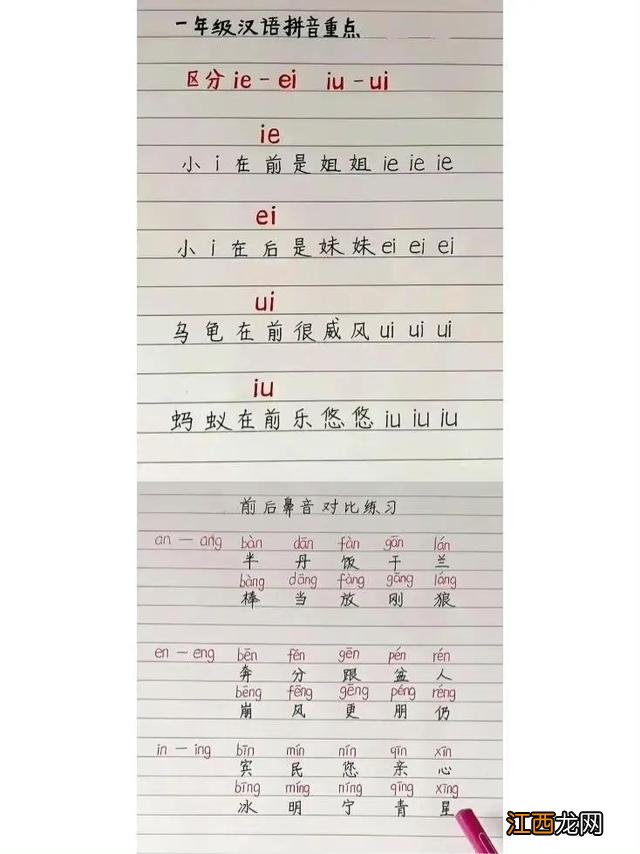 一年级汉语拼音重点
区分 ie-ei iu-ui
ie
小 i 在前是姐姐 ie ie ie
ei
小 i 在后是妹妹 ei ei ei
ui
乌龟在前很威风 ui ui ui
iu
蚂蚁在前乐悠悠 iu iu iu
前后鼻音对比练习
an — ang bàn dān fàn gān lán
半 丹 饭 干 兰
bàng dāng fàng gāng láng
棒 当 放 刚 狼
en — eng bēn fēn gēn pén rén
奔 分 跟 盆 人
bēng fēng gēng péng réng
崩 风 更 朋 仍
in — ing bīn mín nín qīn xīn
宾 民 您 亲 心
bīng míng níng qīng xīng
冰 明 宁 青 星
江西龙网